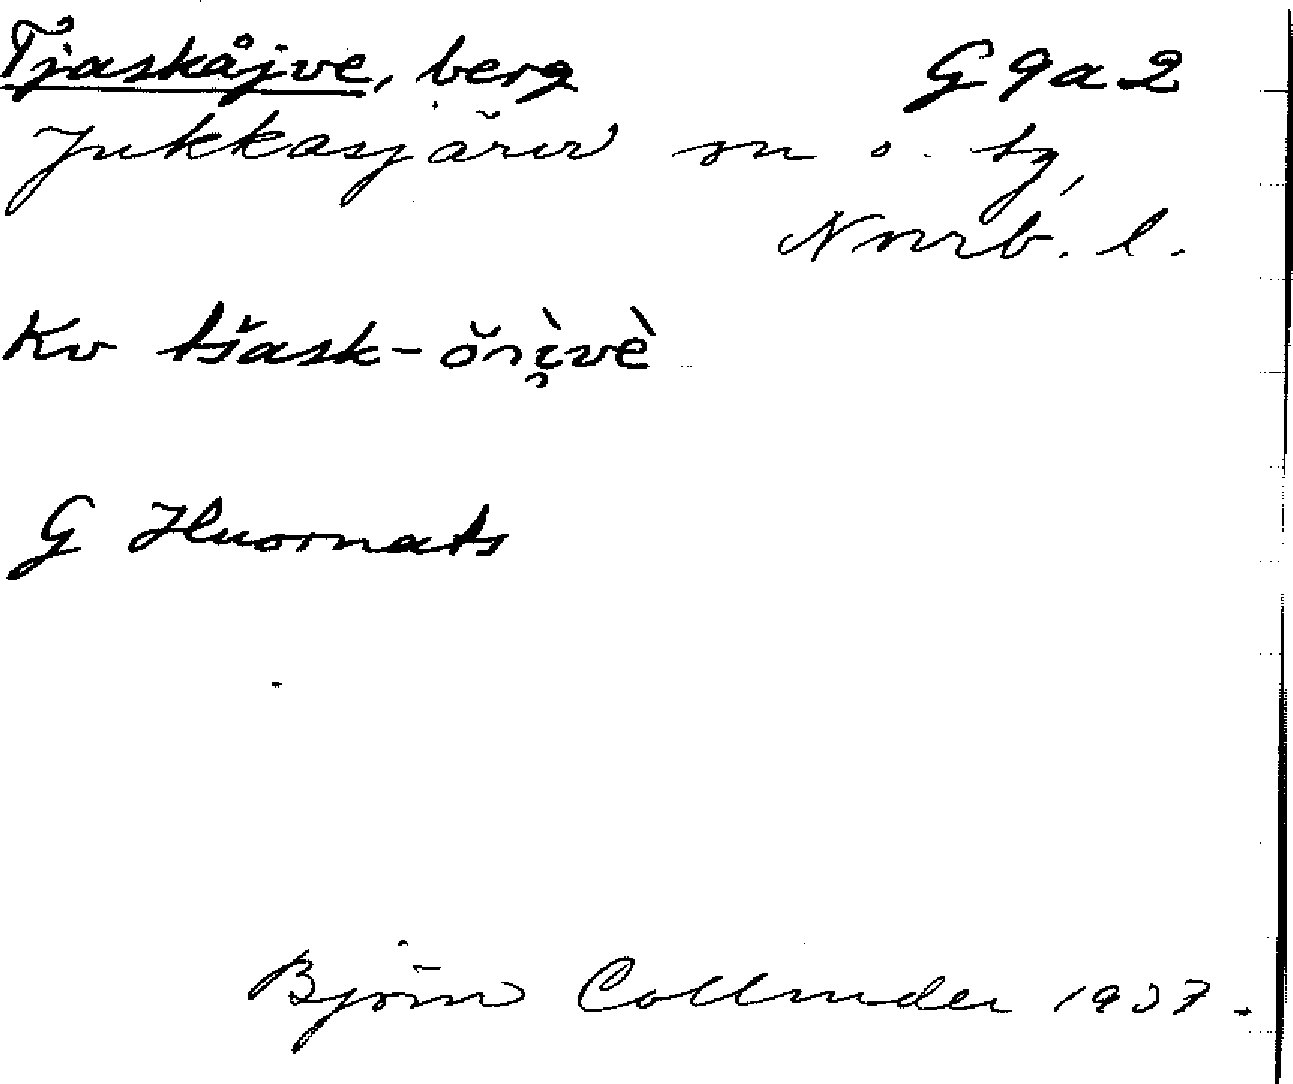 Tjaskåjve, berg G 9 a 2
Jukkasjärvi sn o. tg,
Norrb. l.
Kv tšask-
G Huornats
Björn Collinder 1937.